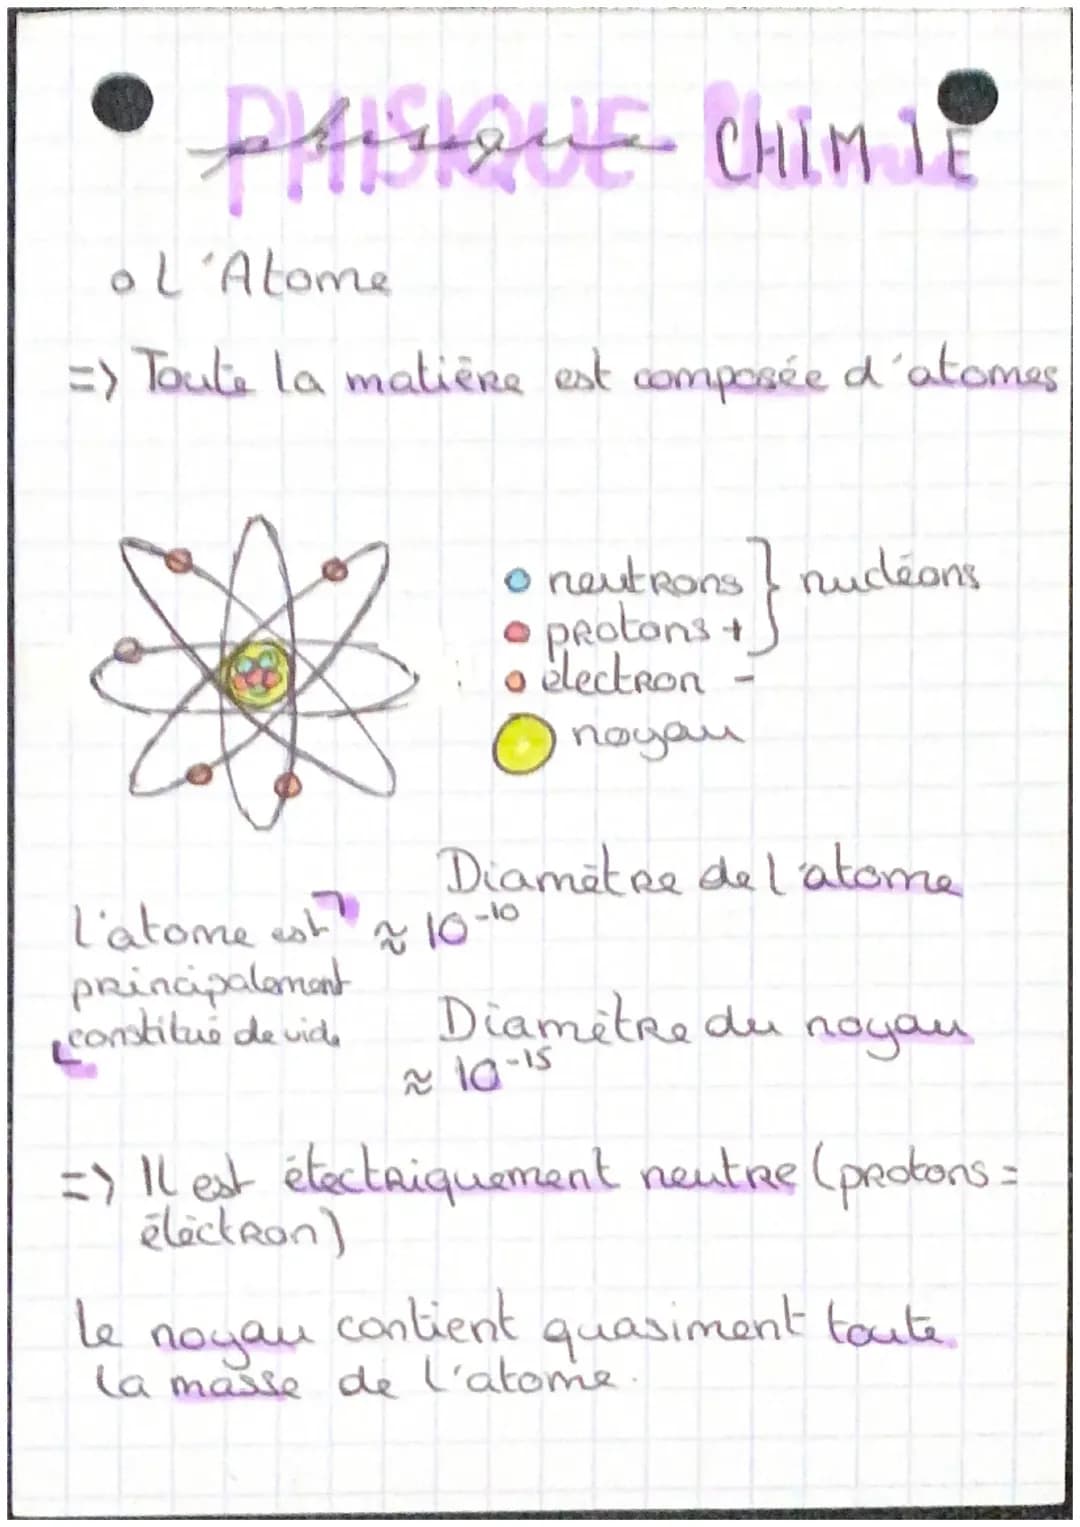 PHISIQUE CHIMIE
o L'Atome
=> Toute la matière est composée d'atomes
neutrons } nucléons
protons +
électron -
noyau
Diamètre de l'atome
≈ 10^-10
l'atome est
principalement
constitué de vide
Diamètre du noyau
≈ 10^-15
=> Il est électriquement neutre (protons =
éléctron)
le noyau contient quasiment toute
la masse de l'atome.